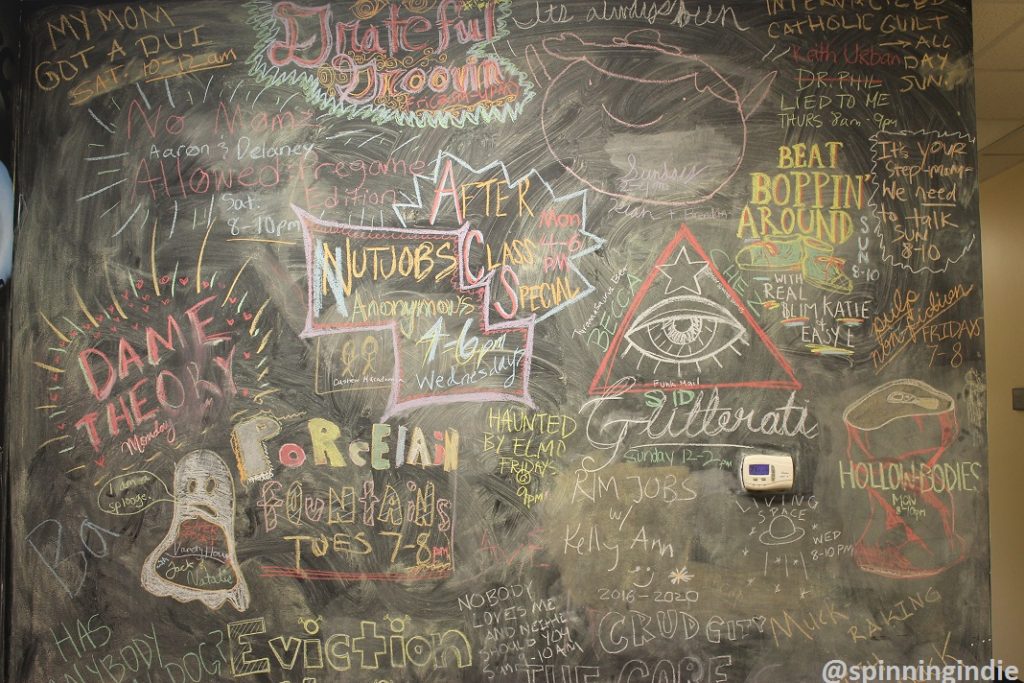 MY MOM
GOT A DUI
SAT. 10-12am
Grateful
Groovin
It's always been
CATHOLIC GUILT
→ ALL
DAY
SUN.
Kath Urban
DR. PHIL
LIED TO ME
THURS 8am-9pm
No Moms
Aaron & Delaney
Allowed: Pregame
Edition
Sat.
8-10pm
AFTER
CLASS
SPECIAL
Mon
4-6
pm
NUTJOBS
Anonymous
4-6pm
Wednesdays
Sundays
BEAT
BOPPIN'
AROUND
SUN
8-10
WITH
REAL
SLIM KATIE
+
EASY E
It's YOUR
Step-mom-
We need
to talk
SUN
8-10
pulp
fiction
non FRIDAYS
7-8
DAME
THEORY
Monday
BECCA
Funk Mail
SID
Glitterati
Sunday 12-2pm
PORCElAin
FOUNTAiNs
TUES 7-8pm
HAUNTED
BY ELMO
FRIDAYS
@
9pm
RIM JOBS
w/
Kelly Ann
2016-2020
LIVING
SPACE
WED
8-10PM
HOLLOW-BODIES
MON
8-10pm
I drink
spooge.
Jack &
Natalie
Ba
HAS
ANYBODY DOG?
Eviction
NOBODY
LOVES ME
AND NEITHER
SHOULD YOU
CRUD CITY
THE CORE
MUCK
RAKING
@spinningindie